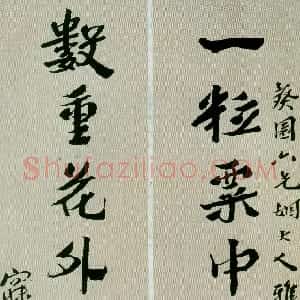 葵園六兄姻大人雅
一粒粟中
數重花外
Shufaziliao.com